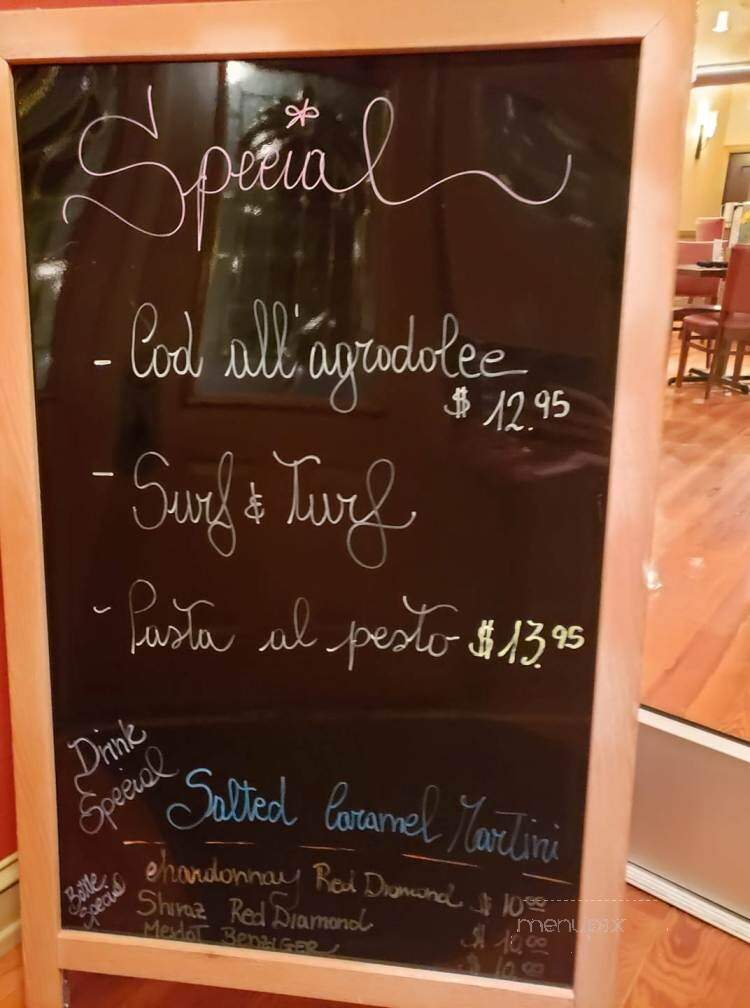 Special
- Cod all'agrodolce
$ 12.95
- Surf & Turf
- Pasta al pesto $13.95
Drink
Special
Salted Caramel Martini
Bottle
Special
Chardonnay Red Diamond $ 10.00
Shiraz Red Diamond $ 10.00
Merlot Benziger $ 10.00
menupix